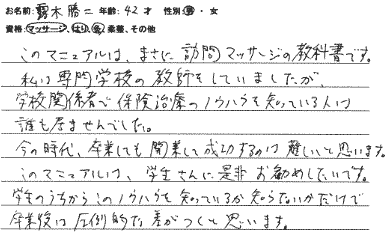 お名前:露木勝二 年齢:42才 性別:男・女
資格:マッサージ、はり、灸、柔整、その他
このマニュアルは、まさに訪問マッサージの教科書です。
私は専門学校の教師をしていましたが、
学校関係者で保険治療のノウハウを知っている人は
誰も居ませんでした。
今の時代、卒業しても開業して成功するのは難しいと思います。
このマニュアルは、学生さんに是非お勧めしたいです。
学生のうちからこのノウハウを知っているか知らないかだけで
卒業後は圧倒的な差がつくと思います。